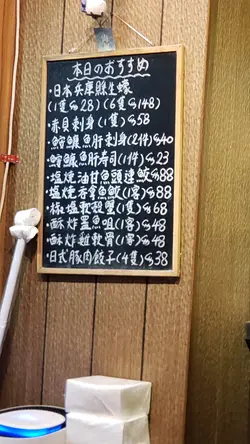 本日のおすすめ
・日本兵庫縣生蠔
(1隻$28)(6隻$148)
・赤貝刺身(1隻)$58
・魚肝刺身(2件)$40
・魚肝寿司(1件)$23
・塩燒油甘魚頭連鮫$88
・塩燒吞拿魚鮫(1客)$88
・椒塩軟殼蟹(1隻)$68
・酥炸魚咀(1客)$48
・酥炸雞軟骨(1客)$48
・日式豚肉餃子(4隻)$38